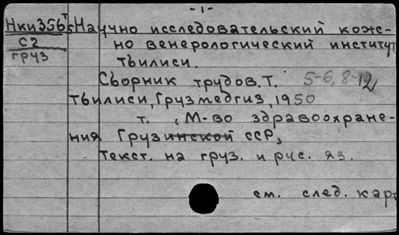 - 1 -
Нки356т Научно исследовательский коже-
С2 но венерологический институт
груз Тбилиси.
Сборник трудов. Т. 5-6, 8-12
Тбилиси, Грузмедгиз, 1950
т. , М-во здравоохране-
ния Грузинской ССР,
текст. на груз. и рус. яз.
см. след. кар